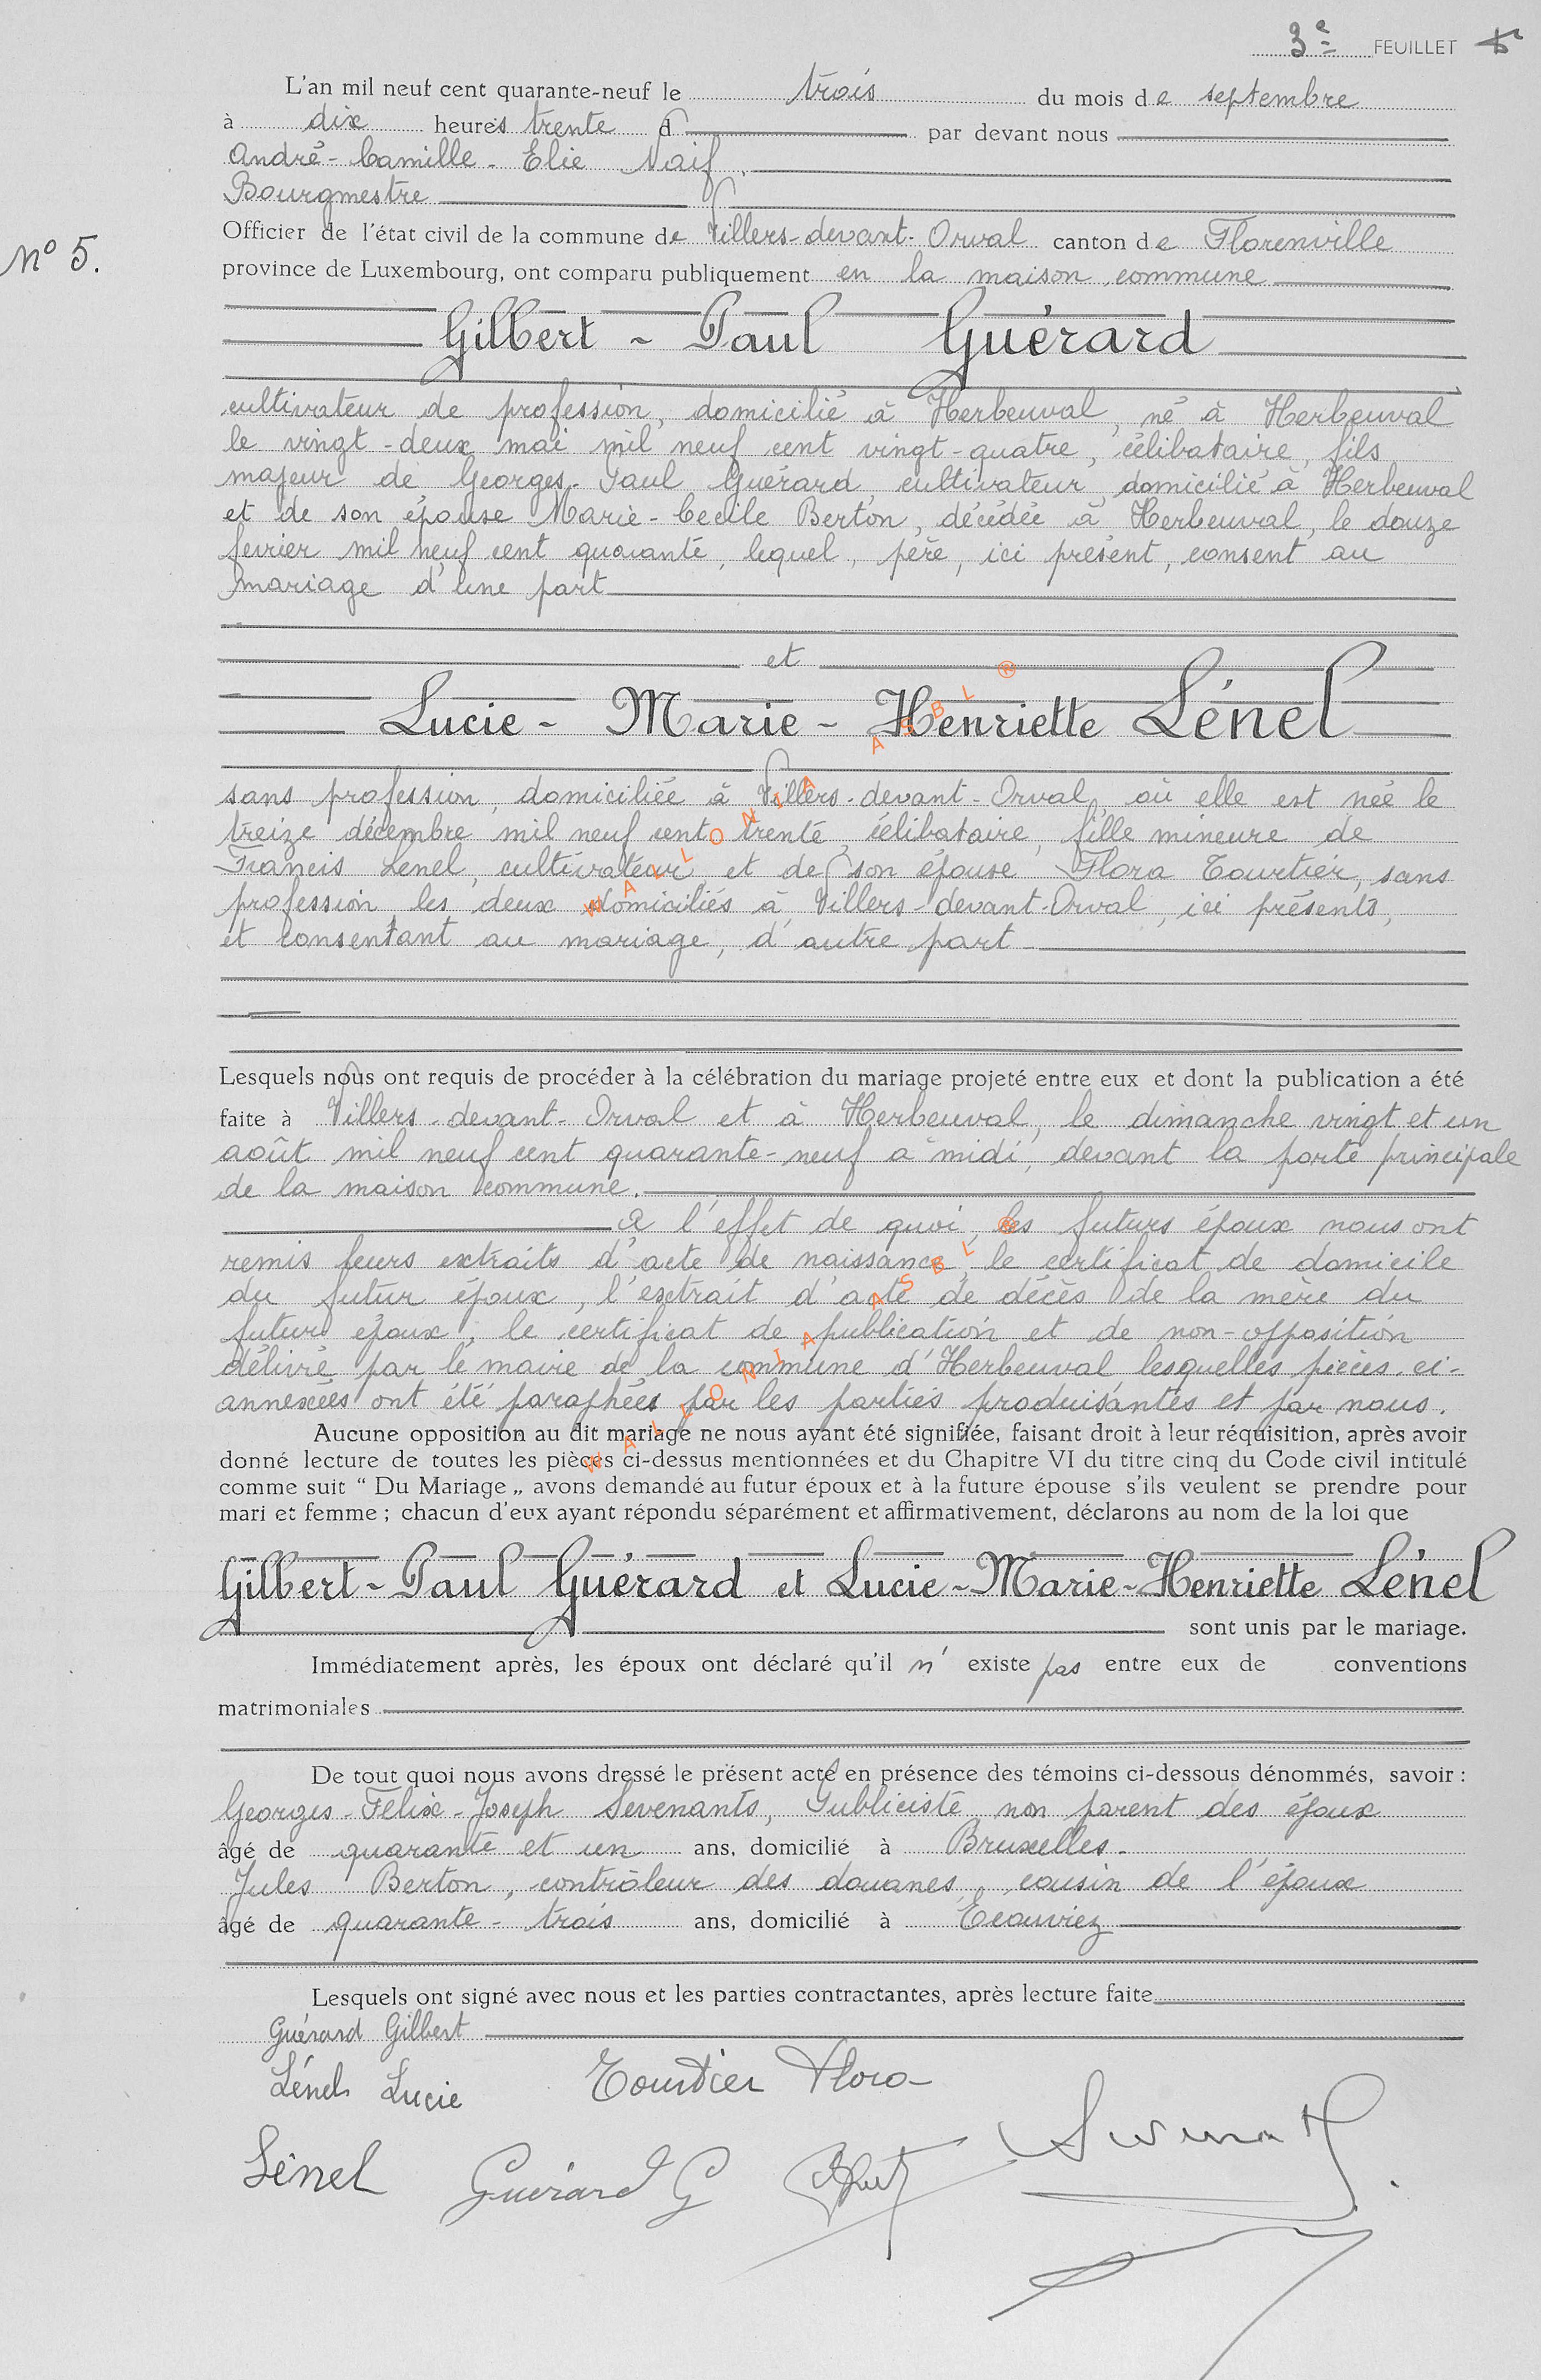 3e FEUILLET
L'an mil neuf cent quarante-neuf le trois du mois de septembre
à dix heures trente d par devant nous
André-Camille-Elie Naif
Bourgmestre
Officier de l'état civil de la commune de Villers-devant-Orval canton de Florenville
N° 5.
province de Luxembourg, ont comparu publiquement en la maison commune
Gilbert - Paul Guérard
cultivateur de profession, domicilié à Herbeuval, né à Herbeuval
le vingt-deux mai mil neuf cent vingt-quatre, célibataire, fils
majeur de Georges-Paul Guérard, cultivateur, domicilié à Herbeuval
et de son épouse Marie-Cécile Berton, décédée à Herbeuval, le douze
février mil neuf cent quarante, lequel, père, ici présent, consent au
mariage d'une part
et
Lucie - Marie - Henriette Lénel
sans profession, domiciliée à Villers-devant-Orval, où elle est née le
treize décembre mil neuf cent trente, célibataire, fille mineure de
Francis Lénel, cultivateur et de son épouse Flora Tourtier, sans
profession, les deux domiciliés à Villers-devant-Orval, ici présents,
et consentant au mariage, d'autre part
WALLONIA ASBL ®
Lesquels nous ont requis de procéder à la célébration du mariage projeté entre eux et dont la publication a été
faite à Villers-devant-Orval et à Herbeuval, le dimanche vingt et un
août mil neuf cent quarante-neuf à midi, devant la porte principale
de la maison commune.
A l'effet de quoi, les futurs époux nous ont
remis leurs extraits d'acte de naissance, le certificat de domicile
du futur époux, l'extrait d'acte de décès de la mère du
futur époux, le certificat de publication et de non-opposition
délivré par le maire de la commune d'Herbeuval lesquelles pièces ci-
annexées ont été paraphées par les parties produisantes et par nous.
WALLONIA ASBL ®
Aucune opposition au dit mariage ne nous ayant été signifiée, faisant droit à leur réquisition, après avoir
donné lecture de toutes les pièces ci-dessus mentionnées et du Chapitre VI du titre cinq du Code civil intitulé
comme suit “ Du Mariage „ avons demandé au futur époux et à la future épouse s'ils veulent se prendre pour
mari et femme ; chacun d'eux ayant répondu séparément et affirmativement, déclarons au nom de la loi que
Gilbert-Paul Guérard et Lucie-Marie-Henriette Lénel
sont unis par le mariage.
Immédiatement après, les époux ont déclaré qu'il n' existe pas entre eux de conventions
matrimoniales
De tout quoi nous avons dressé le présent acte en présence des témoins ci-dessous dénommés, savoir :
Georges-Félix-Joseph Sevenants, Publiciste non parent des époux
âgé de quarante et un ans, domicilié à Bruxelles.
Jules Berton, contrôleur des douanes, cousin de l'époux
âgé de quarante-trois ans, domicilié à Ecouviez
Lesquels ont signé avec nous et les parties contractantes, après lecture faite
Guérard Gilbert
Lénel Lucie Tourtier Flora
Lénel Guérard G